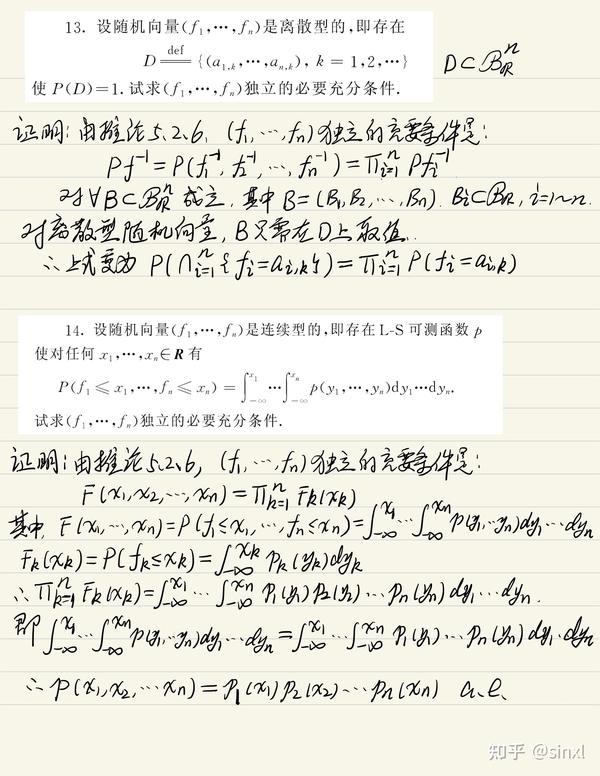 13. 设随机向量(f₁,⋯,fₙ)是离散型的,即存在
D ≝ {(a₁,ₖ,⋯,aₙ,ₖ), k = 1,2,⋯}
D⊂ℬ_R^n
使 P(D)=1. 试求(f₁,⋯,fₙ)独立的必要充分条件.
证明:由推论5.2.6, (f₁,⋯,fₙ)独立的充要条件是:
Pf⁻¹=P(f₁⁻¹, f₂⁻¹, ⋯, fₙ⁻¹)=∏ᵢ₌₁ⁿ Pfᵢ⁻¹
对∀B⊂ℬ_R^n 成立, 其中 B=(B₁,B₂,⋯,Bₙ). Bᵢ⊂ℬ_R, i=1~n.
对离散型随机向量, B只需在D上取值.
∴上式变为 P(∩ᵢ₌₁ⁿ{fᵢ=aᵢ,ₖ})=∏ᵢ₌₁ⁿ P(fᵢ=aᵢ,ₖ)
14. 设随机向量(f₁,⋯,fₙ)是连续型的,即存在 L-S 可测函数 p
使对任何 x₁,⋯,xₙ∈R 有
P(f₁⩽x₁,⋯,fₙ⩽xₙ) = ∫_{-∞}^{x₁}⋯∫_{-∞}^{xₙ} p(y₁,⋯,yₙ)dy₁⋯dyₙ.
试求(f₁,⋯,fₙ)独立的必要充分条件.
证明:由推论5.2.6, (f₁,⋯,fₙ)独立的充要条件是:
F(x₁,x₂,⋯,xₙ)=∏ₖ₌₁ⁿ Fₖ(xₖ)
其中, F(x₁,⋯,xₙ)=P(f₁≤x₁,⋯,fₙ≤xₙ)=∫_{-∞}^{x₁}⋯∫_{-∞}^{xₙ}p(y₁,⋯yₙ)dy₁⋯dyₙ
Fₖ(xₖ)=P(fₖ≤xₖ)=∫_{-∞}^{xₖ} pₖ(yₖ)dyₖ
∴∏ₖ₌₁ⁿ Fₖ(xₖ)=∫_{-∞}^{x₁}⋯∫_{-∞}^{xₙ} p₁(y₁)p₂(y₂)⋯pₙ(yₙ)dy₁⋯dyₙ.
即∫_{-∞}^{x₁}⋯∫_{-∞}^{xₙ}p(y₁,⋯yₙ)dy₁⋯dyₙ=∫_{-∞}^{x₁}⋯∫_{-∞}^{xₙ} p₁(y₁)⋯pₙ(yₙ)dy₁⋯dyₙ
∴p(x₁,x₂,⋯xₙ)=p₁(x₁)p₂(x₂)⋯pₙ(xₙ) a.e.
知乎 @sinxl